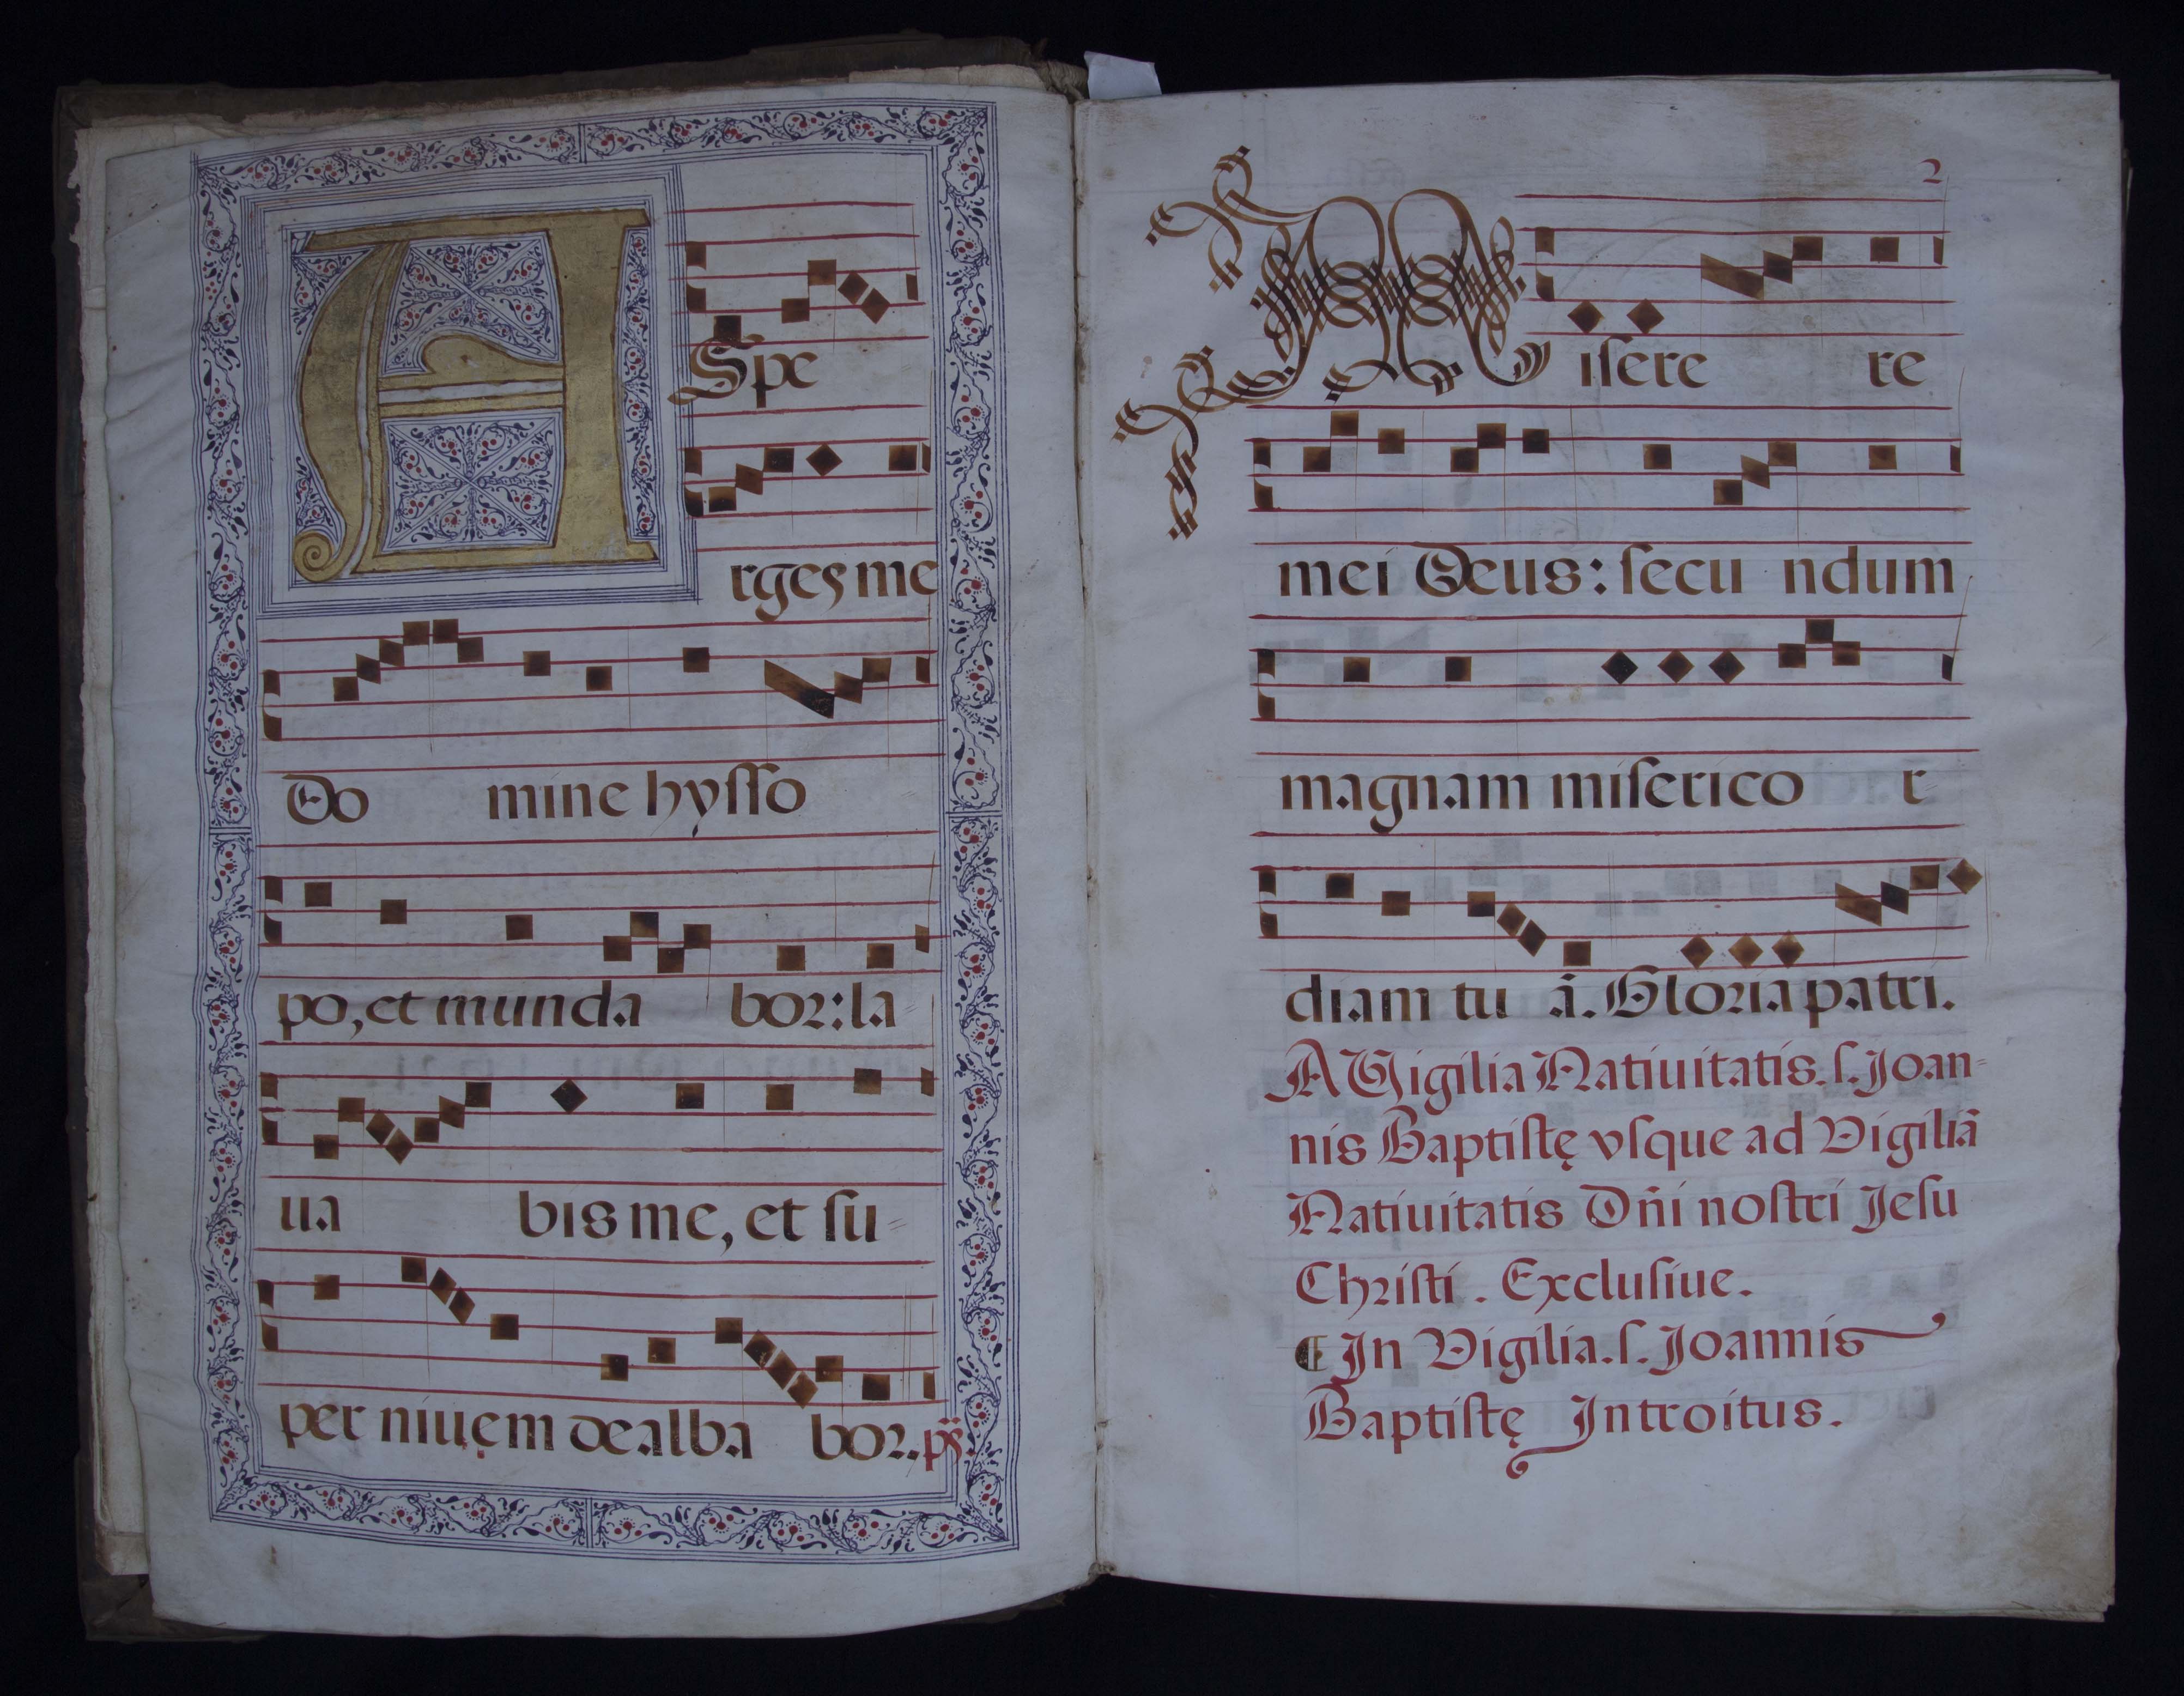 ASpe
rges me
Do mine hyſſo
po, et munda bor: la
ua bis me, et ſu=
per niuem dealba bor. ps.
2
Miſere re
mei Deus: ſecu ndum
magnam miſerico r
diam tu ā. Gloria patri.
A Vigilia Natiuitatis. ſ. Joan=
nis Baptiſtę vſque ad Vigiliā
Natiuitatis Dn̄i noſtri Jeſu
Chriſti. Excluſiue.
¶ In Vigilia. ſ. Joannis
Baptiſtę Introitus.